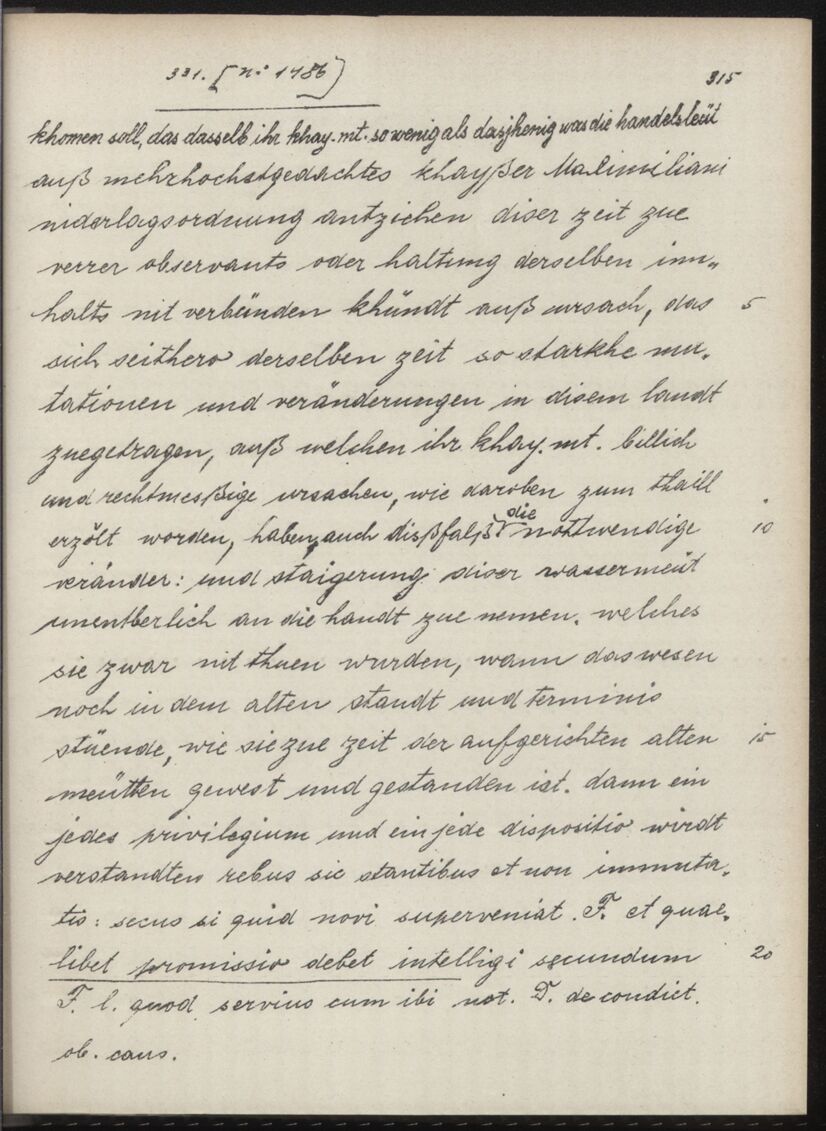 331. [n: 1786] 315
khomen soll, das dasselb ihr khay. mt. so wenig als dasjhenig was die handelsleüt
auß mehrhochstgedachtes khayßer Maximiliani
niderlagsordnung antziehen diser zeit zue
verrer observants oder haltung derselben inn„
halts nit verbünden khündt auß ursach, das 5
sich seithero derselben zeit so starkhe mu„
tationen und veränderungen in disem landt
zuegetragen, auß welchen ihr khay. mt. billich
und rechtmeßige ursachen, wie daroben zum thaill
erzölt worden, haben, auch dißfalß die nottwendige 10
veränder: und staigerung diser wassermeüt
unentberlich an die handt zue nemen. welches
sie zwar nit thuen wurden, wann das wesen
noch in dem alten standt und terminis
stüende, wie sie zue zeit der aufgerichten alten 15
meütten gewest und gestanden ist. dann ein
jedes privilegium und ein jede dispositio wirdt
verstandten rebus sic stantibus et non immuta„
tis: secus si quid novi superveniat. F. et quae„
libet promissio debet intelligi secundum 20
F. l. quod servius cum ibi not. D. de condict.
ob. caus.